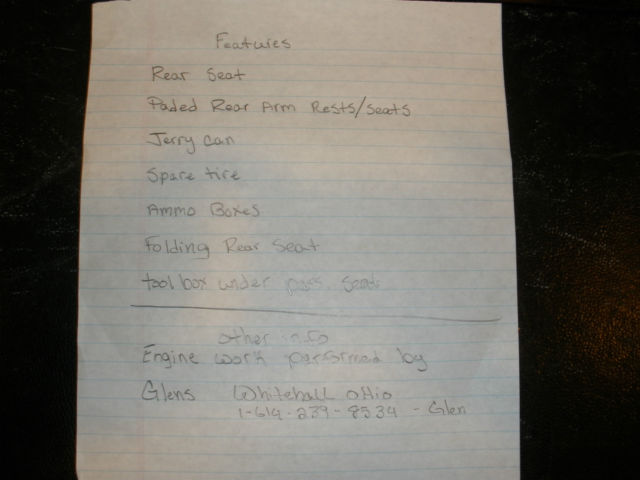 Features
Rear Seat
Paded Rear Arm Rests/Seats
Jerry can
Spare tire
Ammo Boxes
Folding Rear Seat
tool box under pass. Seat
other info
Engine work performed by
Glens Whitehall ohio
1-614-239-8534 - Glen